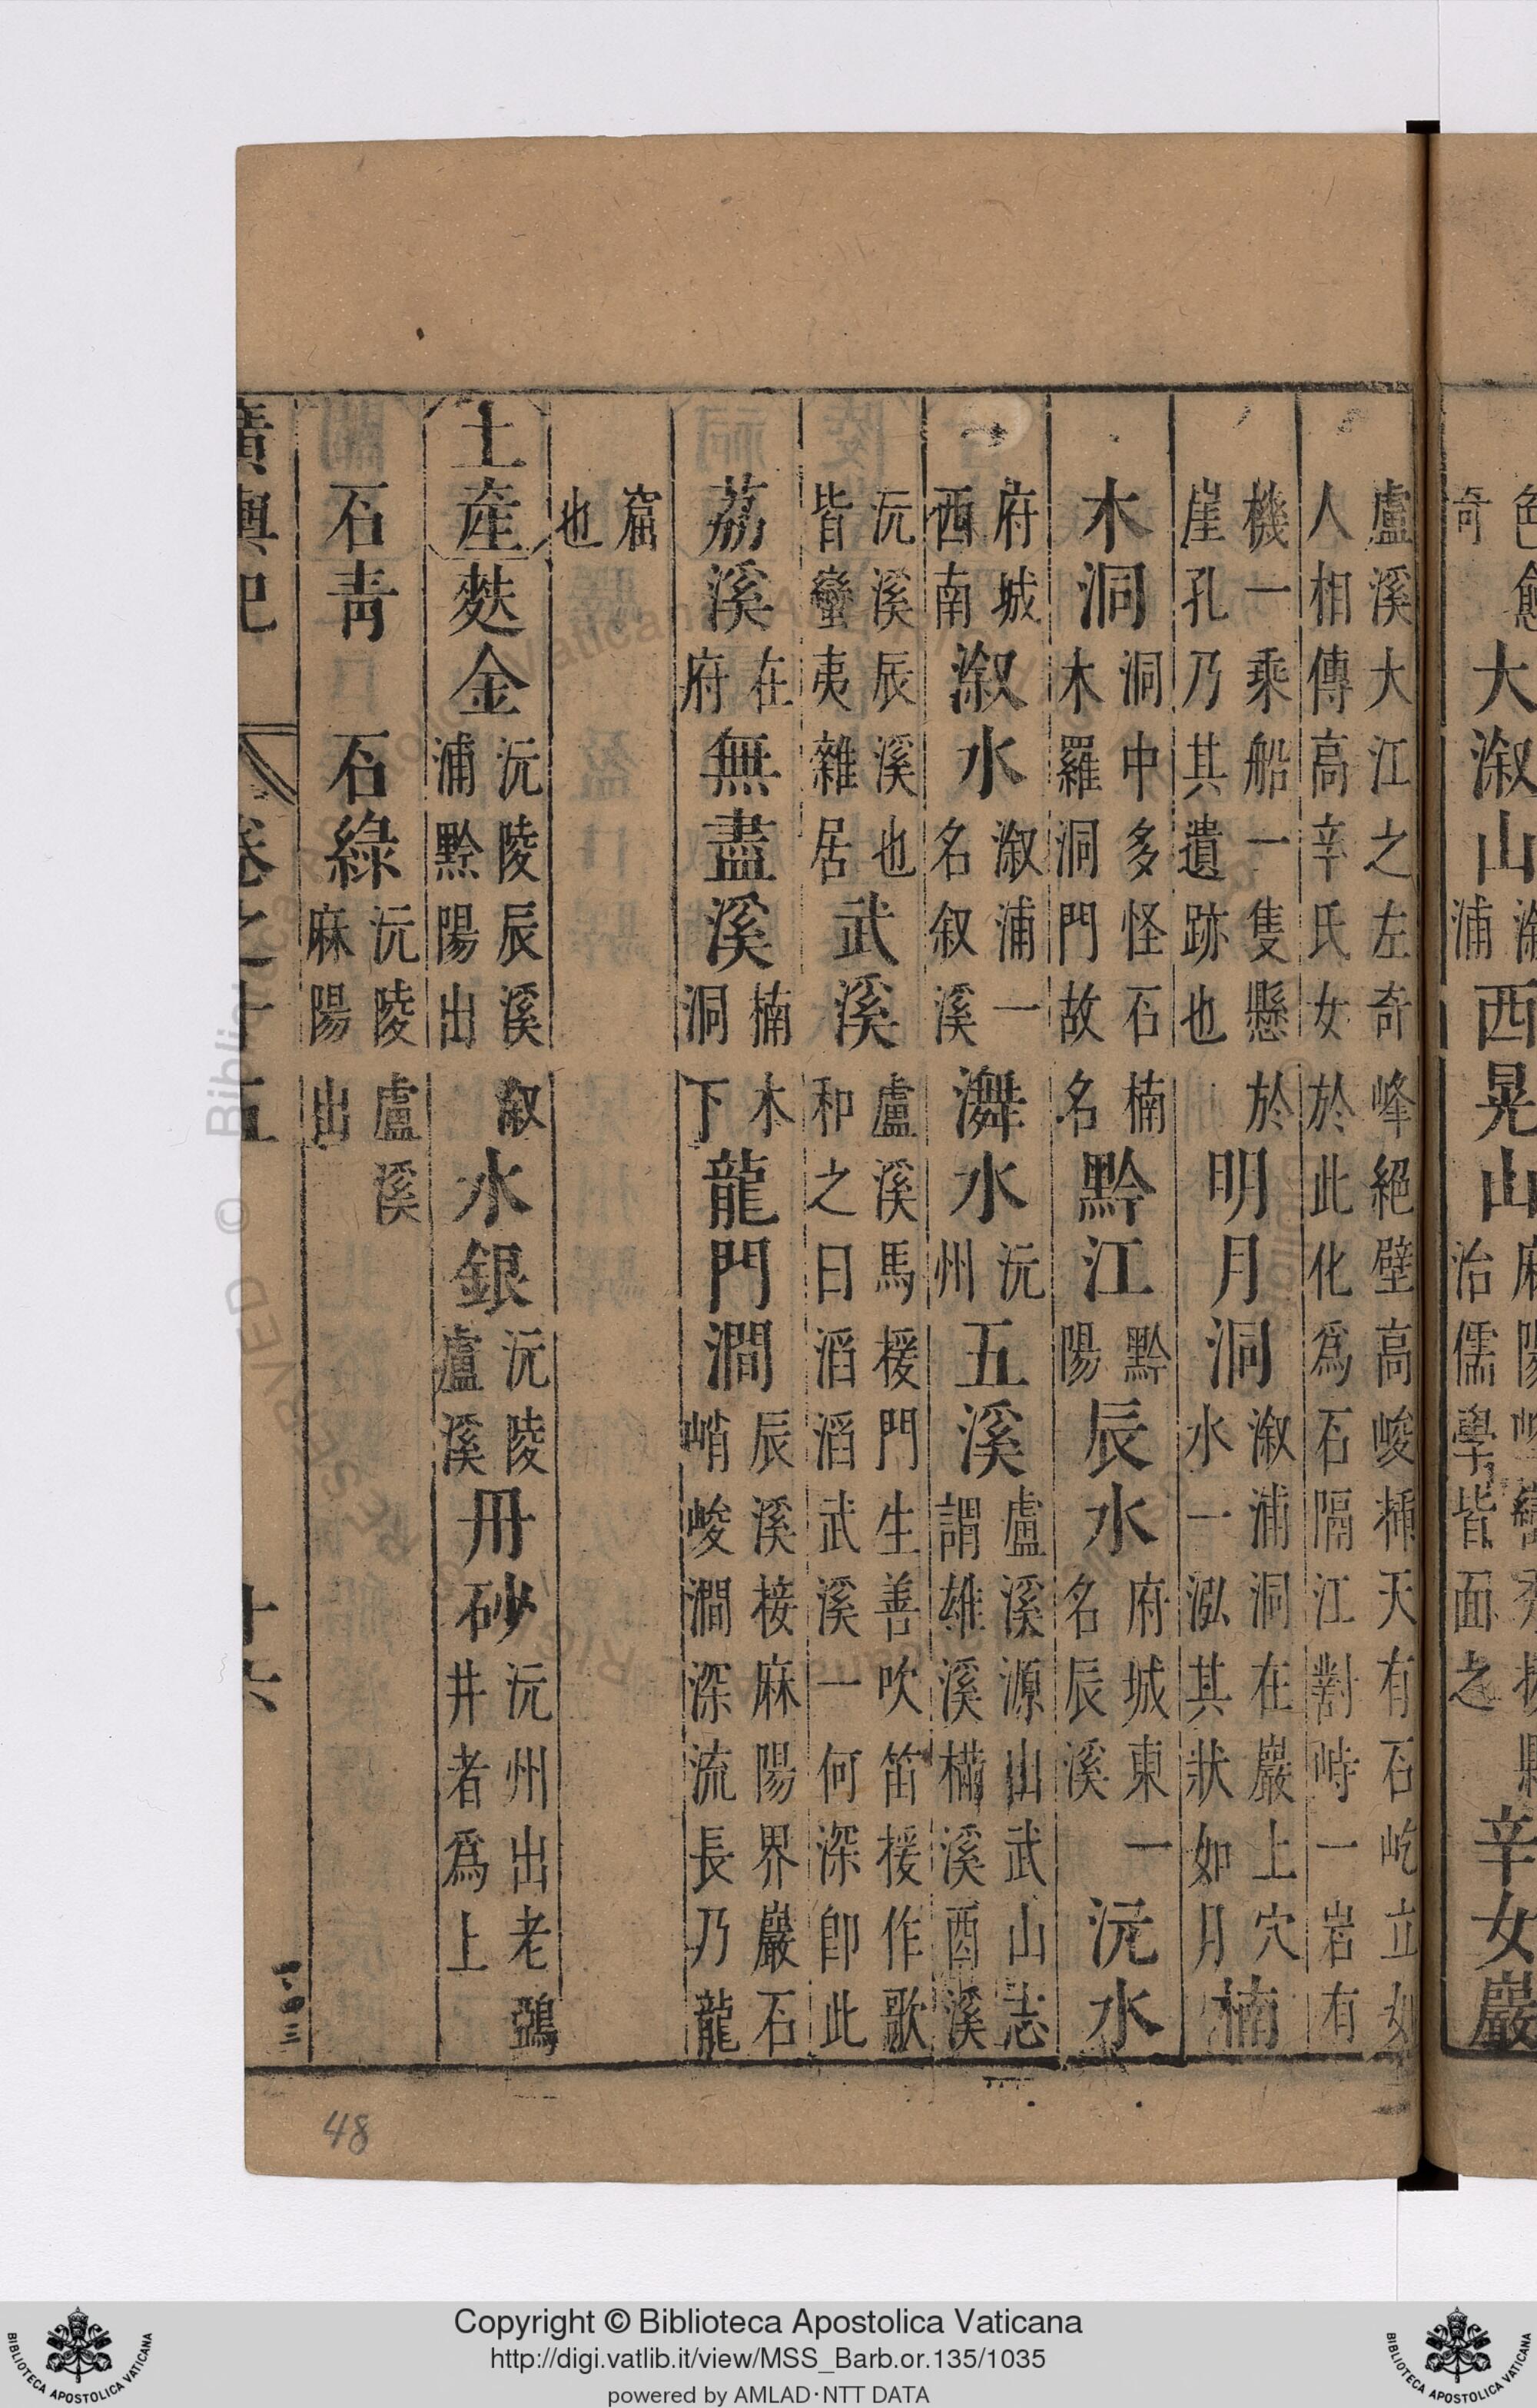 色愈奇大溆山溆浦西晃山麻陽峰巒秀拔縣治儒學皆面之辛女巖
盧溪大江之左奇峰絕壁高峻揷天有石屹立如人相傳高辛氏女於此化爲石隔江對峙一岩有
機一乘船一隻懸於崖孔乃其遺跡也明月洞溆浦洞在巖上穴水一泓其狀如月楠
木洞洞中多怪石楠木羅洞門故名黔江黔陽辰水府城東一名辰溪沅水
府城西南溆水溆浦一名叙溪潕水沅州五溪盧溪源山武山志謂雄溪樠溪酉溪
沅溪辰溪也皆蠻夷雜居武溪盧溪馬援門生善吹笛援作歌和之曰滔滔武溪一何深卽此
荔溪在府無盡溪楠木洞下龍門澗辰溪接麻陽界巖石峭峻澗深流長乃龍
窟也
土産麩金沅陵辰溪溆浦黔陽出水銀沅陵盧溪丹砂沅州出老鵶井者爲上
石青石綠沅陵盧溪麻陽出
廣輿記 卷之十五 十六
一四三
48
Copyright © Biblioteca Apostolica Vaticana
http://digi.vatlib.it/view/MSS_Barb.or.135/1035
powered by AMLAD·NTT DATA
BIBLIOTECA APOSTOLICA VATICANA
BIBLIOTECA APOSTOLICA VATICANA